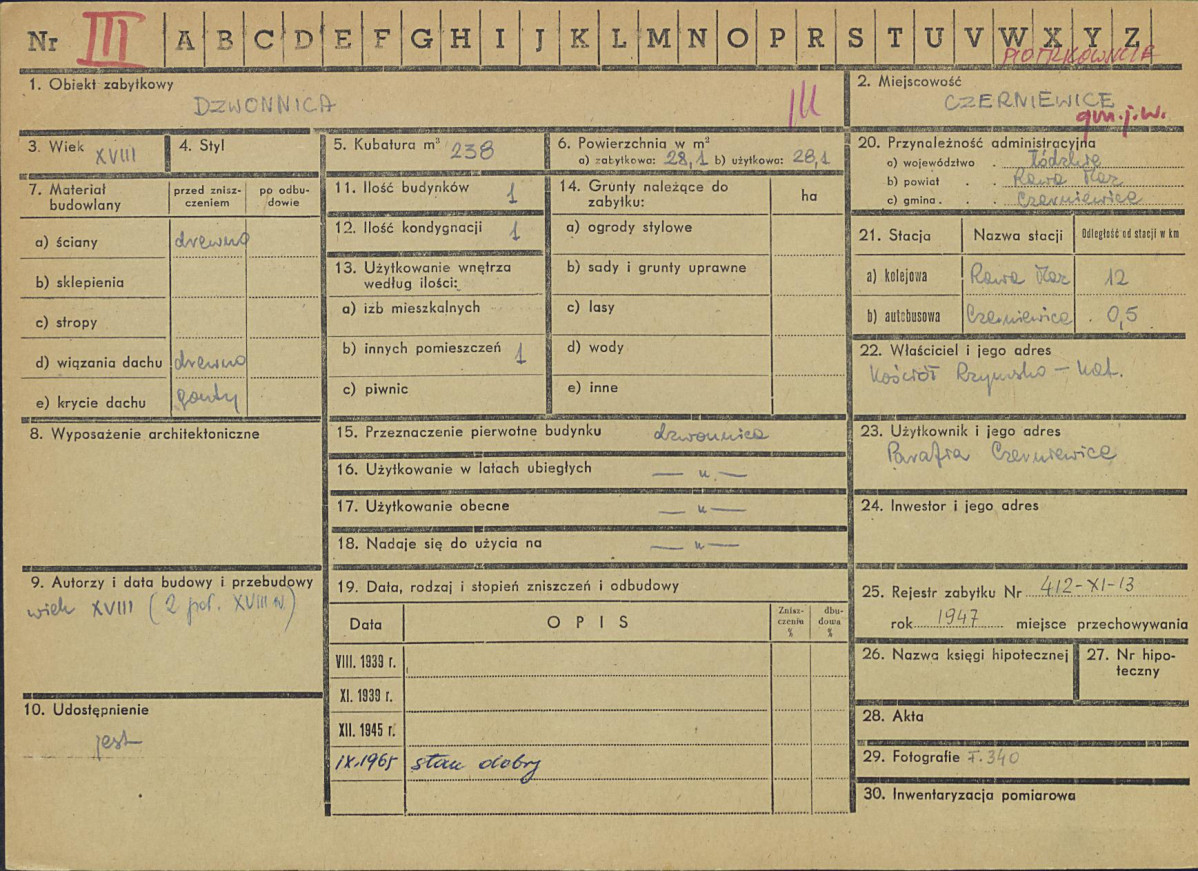 Nr III A B C D E F G H I J K L M N O P R S T U V W X Y Z
1. Obiekt zabytkowy
DZWONNICA
III
2. Miejscowość
CZERNIEWICE
gm. j.w.
3. Wiek XVIII
4. Styl
5. Kubatura m³ 238
6. Powierzchnia w m²
a) zabytkowa: 28,1 b) użytkowa: 28,1
7. Materiał budowlany
przed zniszczeniem
po odbudowie
a) ściany drewno
b) sklepienia
c) stropy
d) wiązania dachu drewno
e) krycie dachu gonty
8. Wyposażenie architektoniczne
9. Autorzy i data budowy i przebudowy
wiek XVIII (2 poł. XVIII w.)
10. Udostępnienie
jest
11. Ilość budynków 1
12. Ilość kondygnacji 1
13. Użytkowanie wnętrza
według ilości:
a) izb mieszkalnych
b) innych pomieszczeń 1
c) piwnic
14. Grunty należące do
zabytku:
ha
a) ogrody stylowe
b) sady i grunty uprawne
c) lasy
d) wody
e) inne
15. Przeznaczenie pierwotne budynku dzwonnica
16. Użytkowanie w latach ubiegłych — „ —
17. Użytkowanie obecne — „ —
18. Nadaje się do użycia na — „ —
19. Data, rodzaj i stopień zniszczeń i odbudowy
Data
OPIS
Zniszczeniu %
dbudowa %
VIII. 1939 r.
XI. 1939 r.
XII. 1945 r.
IX.1965 stan dobry
20. Przynależność administracyjna
a) województwo łódzkie
b) powiat Rawa Maz
c) gmina Czerniewice
21. Stacja
Nazwa stacji
Odległość od stacji w km
a) kolejowa Rawa Maz 12
b) autobusowa Czerniewice 0,5
22. Właściciel i jego adres
Kościół Rzymsko - Kat.
23. Użytkownik i jego adres
Parafia Czerniewice
24. Inwestor i jego adres
25. Rejestr zabytku Nr 412-XI-13
rok 1947 miejsce przechowywania
26. Nazwa księgi hipotecznej
27. Nr hipoteczny
28. Akta
29. Fotografie F.340
30. Inwentaryzacja pomiarowa